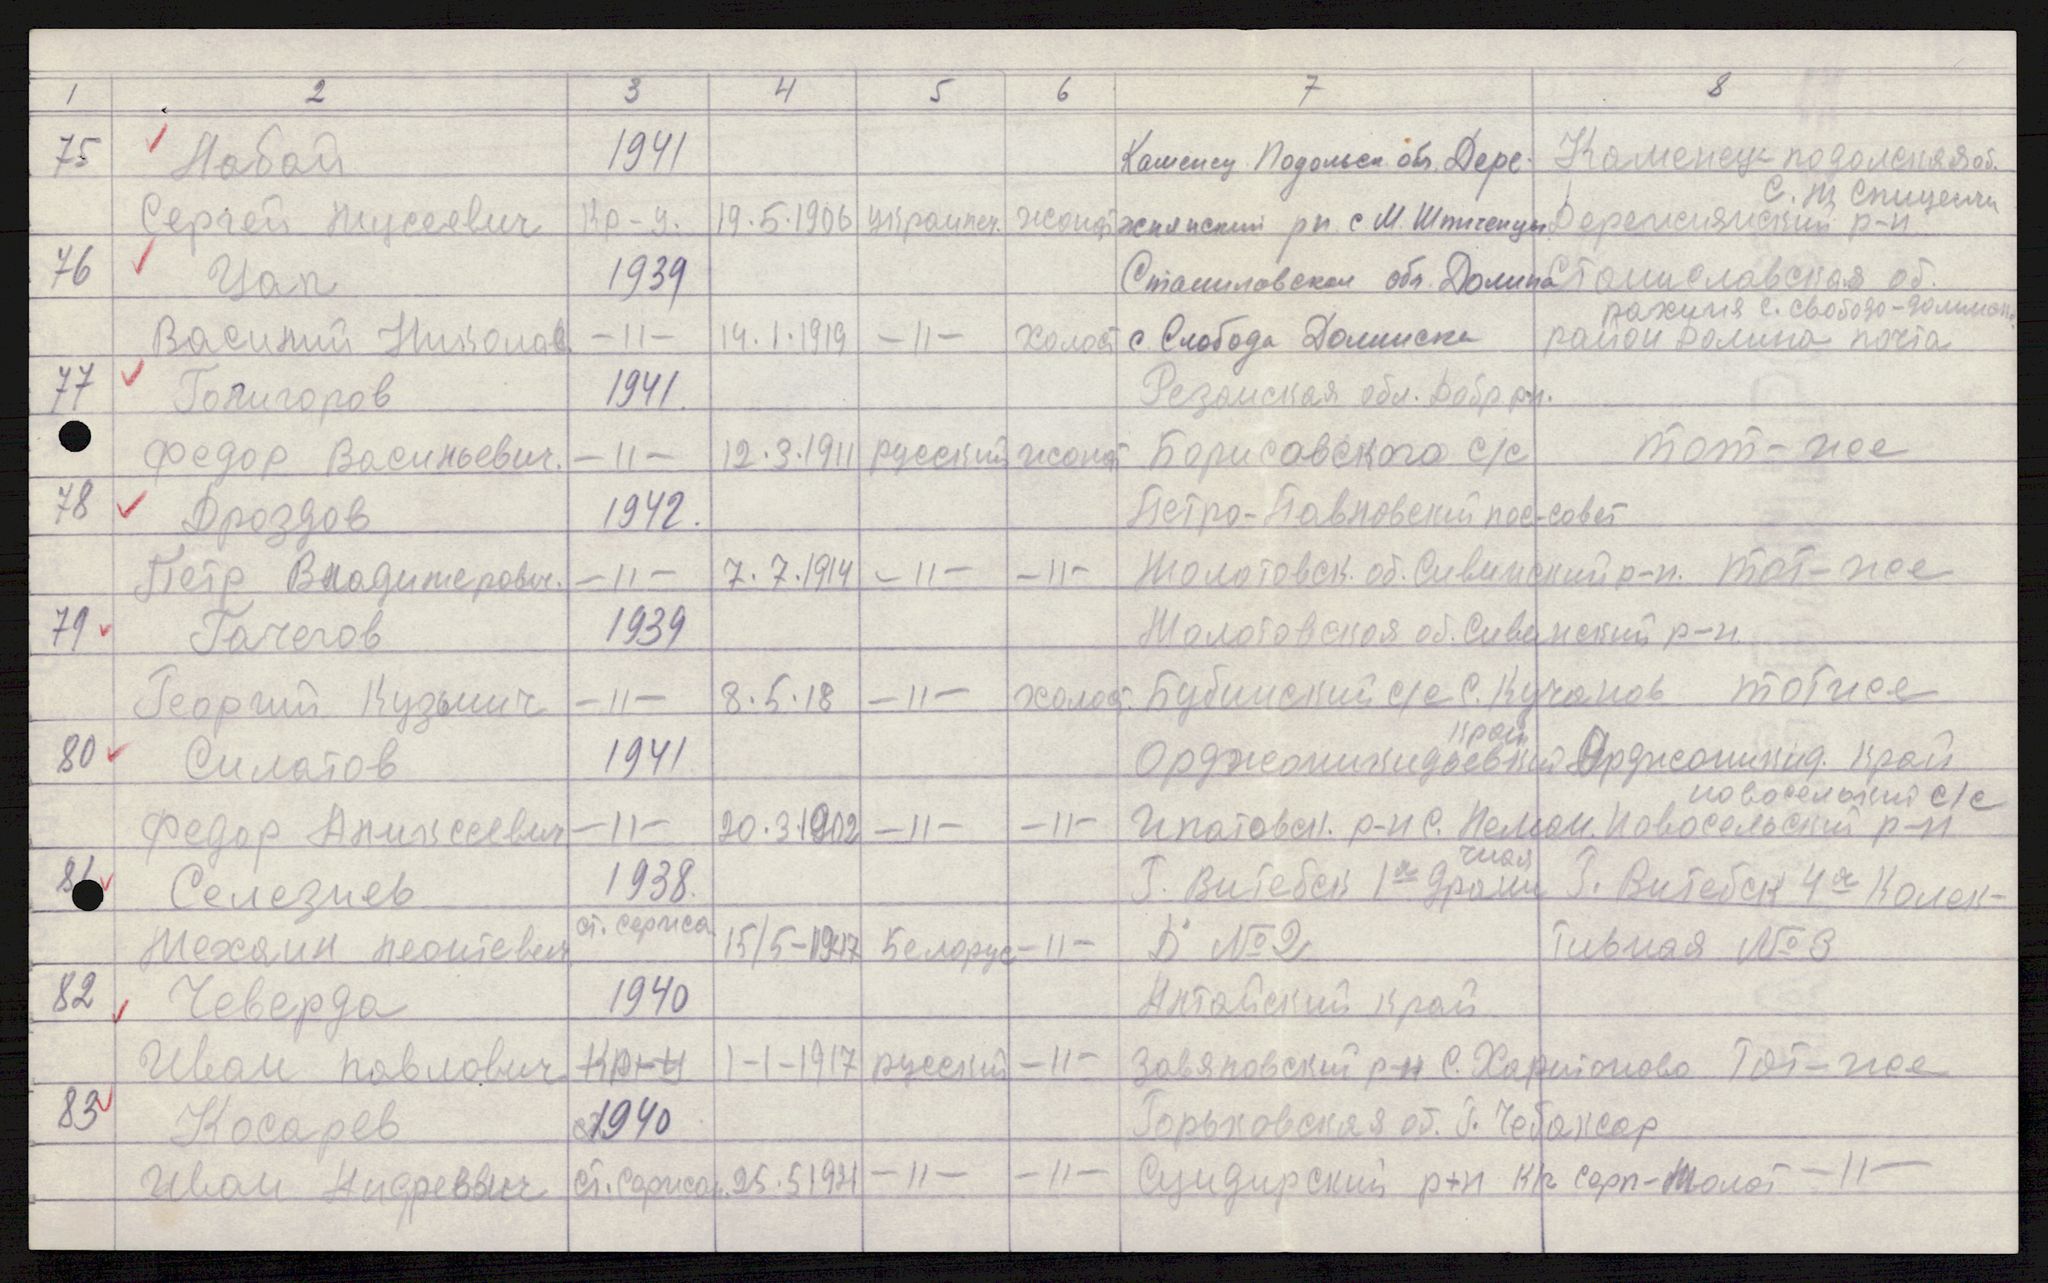 1 2 3 4 5 6 7 8
75 Набой 1941 Каменец Подольск обл. Дере- Каменец-подолская об.
С. Щ Спиценчи
Сергей Мусеевич Кр-ц. 19.5.1906 украинец. жонат жнянский рн с М. Штиченцы Деренснянский р-н
76 Цап 1939 Станиловская обл. Долина Станиславская об.
рахиня с. свободо-долинска
Василий Николав -"- 14.1.1919 -"- холост с. Слобода Долинска район Долина почта
77 Голигоров 1941. Резанская обл. Добр.рн.
Федор Васильевич. -"- 12.3.1911 русский жонат Борисовского с/с тот-же
78 Дроздов 1942. Петро-Павловский пос-совет
Петр Владимерович. -"- 7.7.1914 -"- -"- Молотовск. об. Сивинский р-н. тот-же
79 Гачегов 1939 Молотовская об. Сивинский р-н.
Георгий Кузьмич -"- 8.5.18 -"- холост. Бубинский с/с С. Кучанов тотже
край
80 Силатов 1941 Орджоникидзевский Орджоникид. край
новоселький с/с
Федор Аликсеевич -"- 20.3.1902 -"- -"- Ипатовск. р-н С. Новосельский р-н
чная
81 Селезнев 1938. Г. Витебск 1я драни Г. Витебск 4я Колек-
Мехаил Леонтевич ст. сержса 15/5-1917 Беларус -"- Д. № 2 тивная № 3
82 Чеверда 1940 Алтайский край
Иван Павлович кр-ц 1-1-1917 русский -"- Завяловский р-н С. Харитоново Тот-же
83 Косарев 1940 Горьковская об. Г. Чебаксар
Иван Андреевич ст. сержсан. 25.5.1921 -"- -"- Сундирский р-н К/з серп-молот -"-